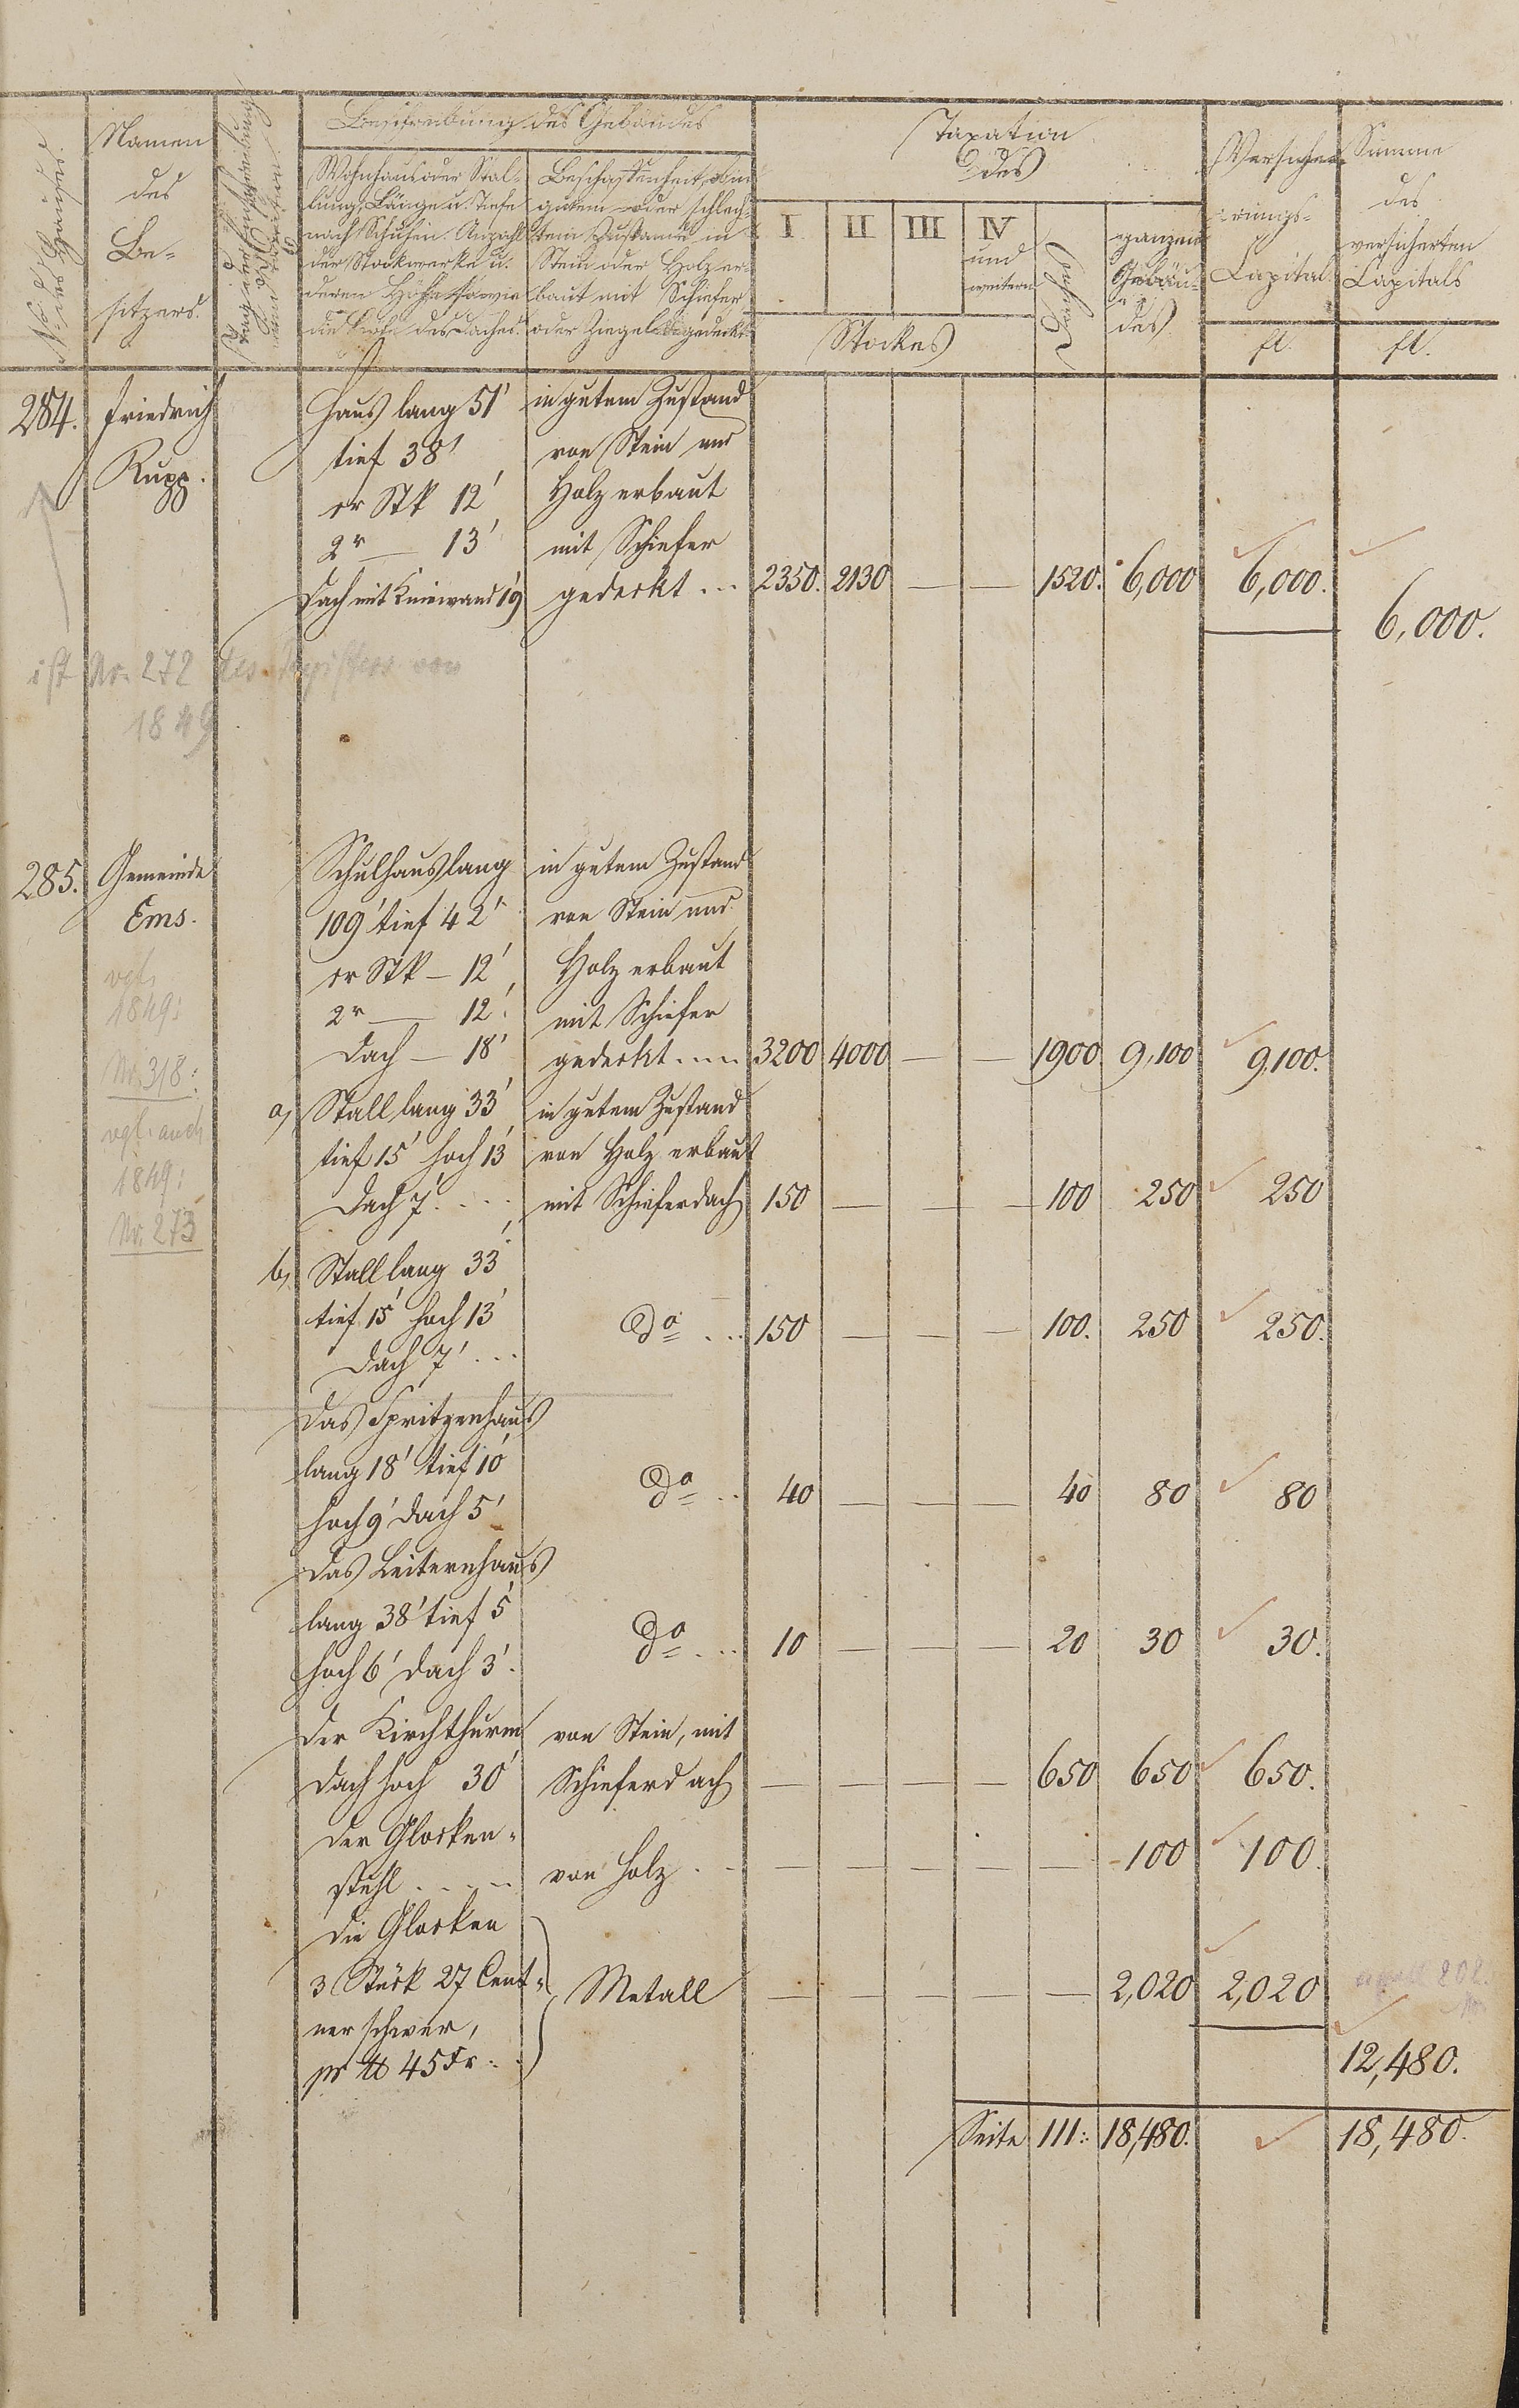 No. des Hauses.
Namen
des
Be-
sitzers.
Beschreibung des Gebäudes
Wohnhaus oder Stal-
lung, Länge u. Tiefe
nach Schuhen. Anzahl
der Stockwerke u.
deren Höhe sowie
die des Daches.
Beschaffenheit, ob in
gutem oder schlech-
tem Zustande in
Stein oder Holz er-
baut mit Schiefer
oder Ziegel gedeckt.
Taxation
des
I II III IV
und
weitern
Stockes
Daches
ganzen
Gebäu-
des
Versiche-
rungs-
Capital.
fl.
Summe
des
versicherten
Capitals
fl.
284. Friedrich Haus lang 51' in gutem Zustand
Rupp. tief 38' von Stein und
er Stk 12' Holz erbaut
2r — 13' mit Schiefer
Dach mit Kniewand 19' gedeckt ... 2350. 2130 — — 1520. 6,000 6,000.
6,000.
ist Nr. 272 des Registers von
1849
285. Gemeinde Schulhaus lang in gutem Zustand
Ems. 109' tief 42' von Stein und
er Stk — 12' Holz erbaut
2r — 12' mit Schiefer
Dach — 18' gedeckt .... 3200 4000 — — 1900 9,100 9,100.
vgl.
1849:
Nr. 318:
vgl. auch
1849:
Nr. 273
a, Stall lang 33' in gutem Zustand
tief 15' hoch 13' von Holz erbaut
Dach 7' .... mit Schieferdach 150 — — — 100 250 250
b, Stall lang 33'
tief 15' hoch 13' do .. 150 — — — 100. 250 250.
Dach 7' ...
Das Spritzenhaus
lang 18' tief 10' do .. 40 — — — 40 80 80
hoch 9' Dach 5'
Das Leiternhaus
lang 38' tief 5' do ... 10 — — — 20 30 30.
hoch 6' Dach 3'.
Der Kirchthurm von Stein, mit
Dach hoch 30' Schieferdach — — — — 650 650 650.
Der Glocken-
stuhl ..... von Holz .. — — — — — 100 100.
Die Glocken
3 Stück 27 Cent- Metall — — — — — 2,020 2,020
ner schwer,
pr ℔ 45 Kr.
12,480.
Seite 111: 18,480. 18,480.